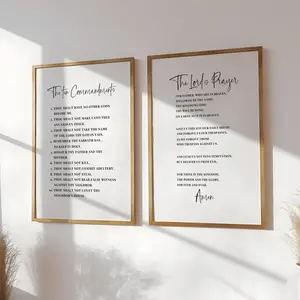 The ten Commandments
1. THOU SHALT HAVE NO OTHER GODS
BEFORE ME.
2. THOU SHALT MAKE UNTO THEE
ANY GRAVEN IMAGE.
3. THOU SHALT NOT TAKE THE NAME
OF THE LORD THY GOD IN VAIN.
4. REMEMBER THE SABBATH DAY,
TO KEEP IT HOLY.
5. HONOUR THY FATHER AND THY
MOTHER.
6. THOU SHALT NOT KILL.
7. THOU SHALT NOT COMMIT ADULTERY.
8. THOU SHALT NOT STEAL.
9. THOU SHALT NOT BEAR FALSE WITNESS
AGAINST THY NEIGHBOR.
10. THOU SHALT NOT COVET THY
NEIGHBOR'S HOUSE.
The Lord's Prayer
OUR FATHER, WHO ART IN HEAVEN,
HALLOWED BE THY NAME;
THY KINGDOM COME;
THY WILL BE DONE;
ON EARTH AS IT IS IN HEAVEN.
GIVE US THIS DAY OUR DAILY BREAD.
AND FORGIVE US OUR TRESPASSES,
AS WE FORGIVE THOSE
WHO TRESPASS AGAINST US.
AND LEAD US NOT INTO TEMPTATION;
BUT DELIVER US FROM EVIL.
FOR THINE IS THE KINGDOM,
THE POWER AND THE GLORY,
FOR EVER AND EVER.
Amen